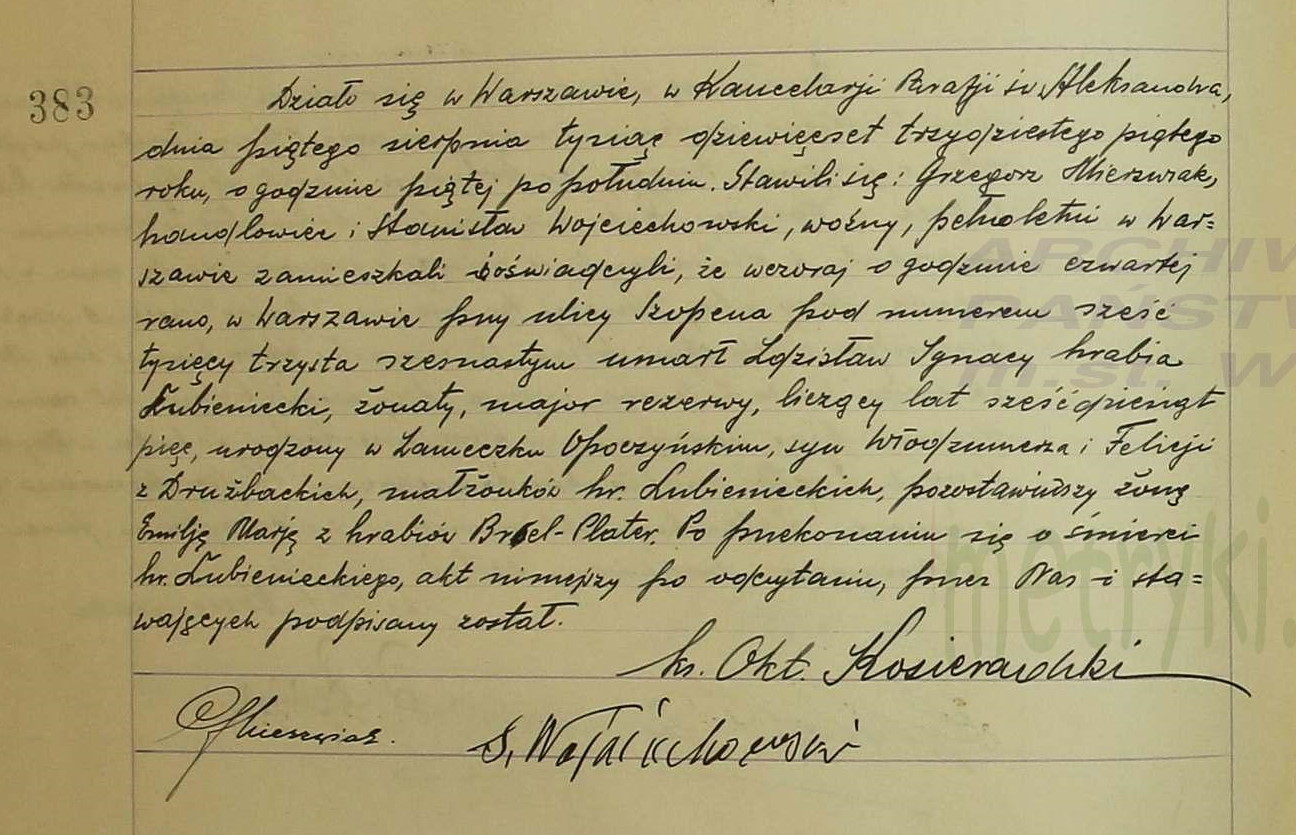 383
Działo się w Warszawie, w Kancelarji Parafji św. Aleksandra,
dnia piątego sierpnia tysiąc dziewięćset trzydziestego piątego
roku, o godzinie piątej po południu. Stawili się: Grzegorz Mierzwiak,
handlowiec i Stanisław Wojciechowski, woźny, pełnoletni w War=
szawie zamieszkali i oświadczyli, że wczoraj o godzinie czwartej
rano, w Warszawie przy ulicy Szopena pod numerem sześć
tysięcy trzysta szesnastym umarł Zdzisław Ignacy hrabia
Łubieniecki, żonaty, major rezerwy, liczący lat sześćdziesiąt
pięć, urodzony w Zameczku Opoczyńskim, syn Włodzimierza i Felicji
z Drużbackich, małżonków hr. Łubienieckich, pozostawiwszy żonę
Emilję Marję z hrabiów Broel-Plater. Po przekonaniu się o śmierci
hr. Łubienieckiego, akt niniejszy po odczytaniu, przez Nas i sta=
wających podpisany został.
ks. Okt. Kosieradzki
G Mierzwiak.
S. Wojciechowski
ARCHIW
PAŃSTW
m.st. W
metryki.